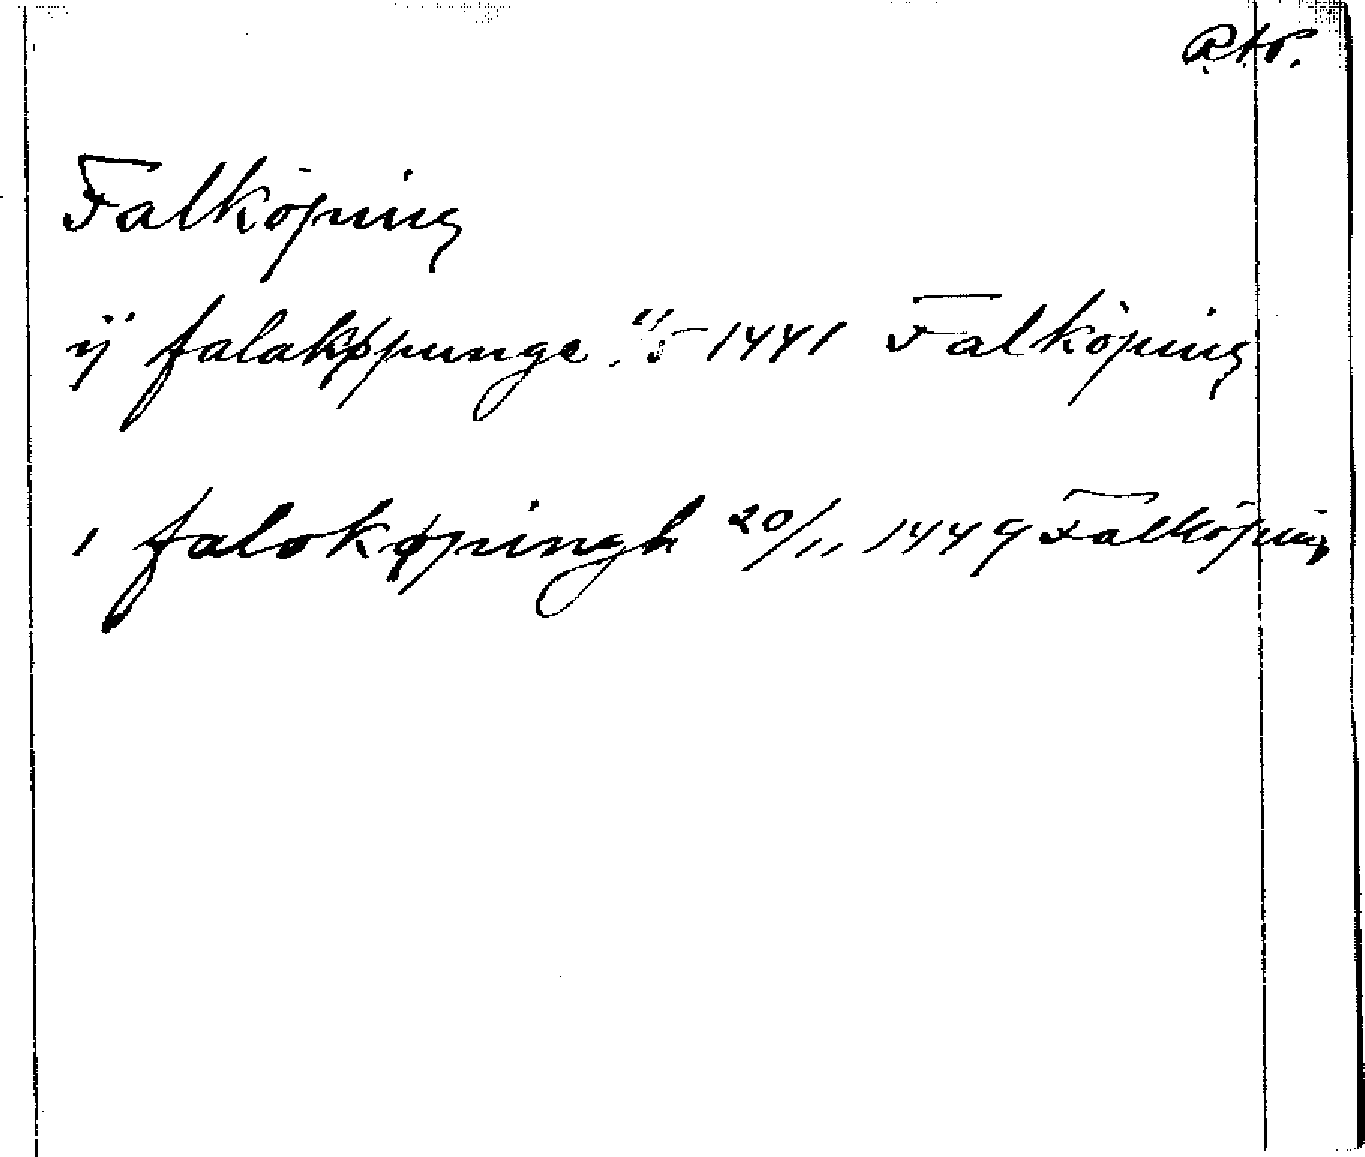 R.A.P.
Falköping
ÿ falakøpunge 11/5 1441 Falköping
i falokøpingh 20/11 1449 Falköping